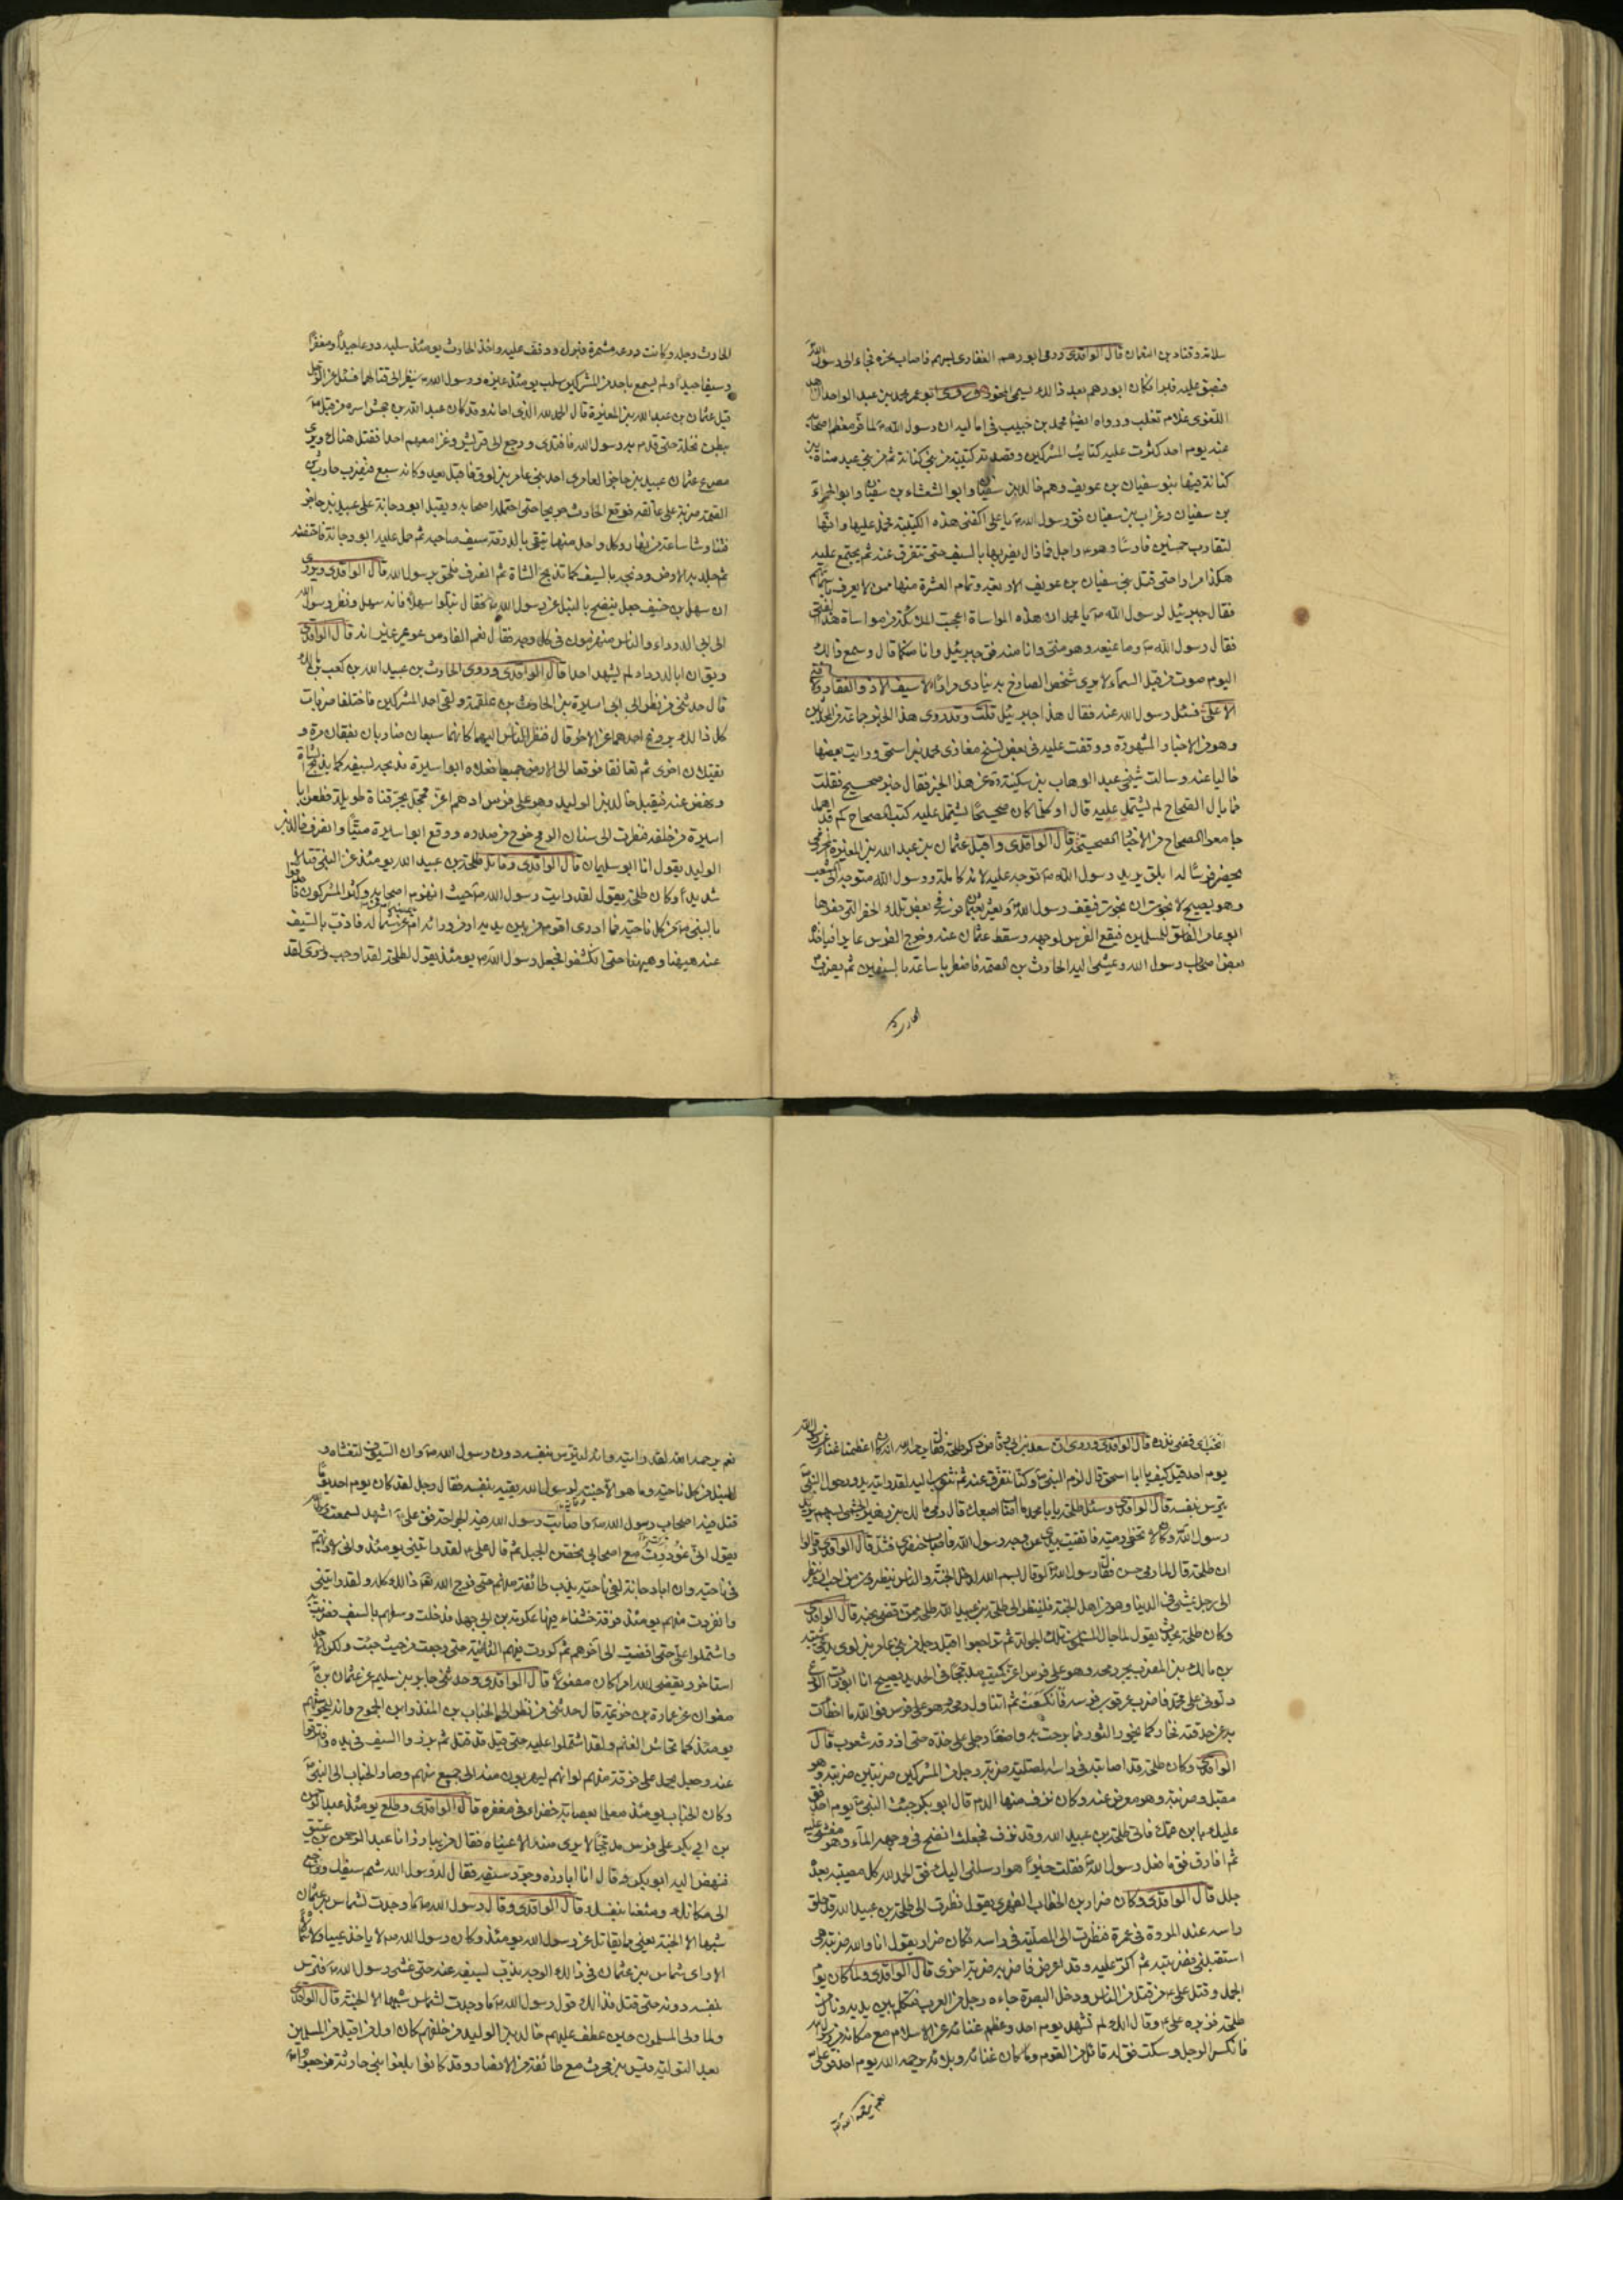 سلامه وقتادة بن النعمان قال الواقدى ورمى ابو رهم الغفارى بسهم فاصاب نحره فجاء الى رسول الله
فبصق عليه فبرا فكان ابو رهم بعد ذالك يسمى المنحور وروى ابو عمر محمد بن عبد الواحد الزاهد
اللغوى غلام ثعلب ورواه ايضا محمد بن حبيب فى اماليه ان رسول الله ص لما فر معظم اصحابه
عنه يوم احد كثرت عليه كتائب المشركين وقصدته كتيبة من بنى كنانة ثم من بنى عبد مناة بن
كنانة فيها بنو سفيان بن عويف وهم خالد بن سفيان وابو الشعثاء بن سفيان وابو الحمراء
بن سفيان وغراب بن سفيان فق رسول الله ص يا على اكفنى هذه الكتيبة فحمل عليها وانها
لتقارب خمسين فارسا وهو ع راجل فما زال يضربها بالسيف حتى تتفرق عنه ثم يجتمع عليه
هكذا مرارا حتى قتل بنى سفيان بن عويف الاربعة وتمام العشرة منها ممن لا يعرف باسمائهم
فقال جبرئيل لرسول الله ص يا محمد ان هذه المواساة لقد عجبت الملئكة من مواساة هذا الفتى
فقال رسول الله ص وما يمنعه وهو منى وانا منه فق جبرئيل وانا منكما قال وسمع ذالك
اليوم صوت من قبل السماء لا يرى شخص الصارخ به ينادى مرارا لا سيف الا ذو الفقار ولا فتى
الا على فسئل رسول الله عنه فقال هذا جبرئيل قلت وقد روى هذا الخبر جماعة من المحدثين
وهو من الاخبار المشهورة ووقفت عليه فى بعض نسخ مغازى محمد بن اسحق ورايت بعضها
خاليا عنه وسالت شيخى عبد الوهاب بن سكينة ره عن هذا الخبر فقال خبر صحيح فقلت
فما بال الصحاح لم يشتمل عليه قال او كلما كان صحيحا يشتمل عليه كتب الصحاح كم قد اهمل
جامعوا الصحاح من الاخبار الصحيحة قال الواقدى واقبل عثمان بن عبد الله بن المغيرة المخزومى
يحضر فرسا له ابلق يريد رسول الله ص توجه عليه لامة كاملة ورسول الله متوجه الى الشعب
وهو يصيح لا نجوت ان نجوت فيقف رسول الله ص ويعثر بعثمان فرسه فى بعض تلك الحفر التى حفرها
ابو عامر الفاسق للمسلمين فيقع الفرس لوجهه وسقط عثمان عنه وخرج الفرس عايرا فياخذه
بعض اصحاب رسول الله ويمشى اليه الحارث بن الصمة فاضطربا ساعة بالسيفين ثم يضرب
الحارث
الحارث رجله وكانت درعه مشمرة فبرك ودفف عليه واخذ الحارث يومئذ سلبه درعا جيدا ومغفرا
وسيفا جيدا ولم يسمع باحد من المشركين سلب يومئذ غيره ورسول الله ص ينظر الى قتالهما فسئل عن الرجل
قيل عثمان بن عبد الله بن المغيرة قال الحمد لله الذى احانه وقد كان عبد الله بن جحش اسره من قبل
ببطن نخلة حتى قدم به رسول الله فافتدى ورجع الى قريش وغزا معهم احدا فقتل هناك ويرى
مصرع عثمان عبيد بن حاجز العامرى احد بنى عامر بن لوى فاقبل يعدو كانه سبع فيضرب حارث بن
الصمة ضربة على عاتقه فوقع الحارث جريحا حتى احتمله اصحابه ويقبل ابو دجانة على عبيد بن حاجز
فتناوشا ساعة من نهار وكل واحد منهما يتقى بالدرقة سيف صاحبه ثم حمل عليه ابو دجانة فاحتضنه
ثم جلد به الارض وذبحه بالسيف كما تذبح الشاة ثم انصرف فلحق برسول الله قال الواقدى ويروى
ان سهل بن حنيف جعل ينضح بالنبل عن رسول الله ص فقال نبلوا سهلا فانه سهل ونظر رسول الله
الى ابى الدرداء والناس منهزمون فى كل وجه فقال نعم الفارس عويمر غير انه قال الواقدى
ويق ان ابا الدرداء لم يشهد احدا قال الواقدى وروى الحارث بن عبيد الله بن كعب بن مالك
قال حدثنى من نظر الى ابى اسيرة بن الحارث بن علقمة ولقى احد المشركين فاختلفا ضربات
كل ذالك يروغ احدهما عن الاخر قال فنظر الناس اليهما كانهما سبعان ضاريان يقفان مرة و
يقتتلان اخرى ثم تعانقا فوقعا الى الارض جميعا فعلاه ابو اسيرة فذبحه بسيفه كما يذبح الشاة
ونهض عنه فيقبل خالد بن الوليد وهو على فرس ادهم اغر محجل يجر قناة طويلة فطعن ابا
اسيرة من خلفه فنظرت الى سنان الرمح خرج من صدره ووقع ابو اسيرة ميتا وانصرف خالد بن
الوليد يقول انا ابو سليمان قال الواقدى وقاتل طلحة بن عبيد الله يومئذ عن النبى قتالا
شديدا وكان طلحة يقول لقد رايت رسول الله ص حيث انهزم اصحابه وكثر المشركون فاحدقوا
بالنبى ص من كل ناحية فما ادرى اقوم من بين يديه او من ورائه ام عن يمينه ام عن شماله فاذب بالسيف
عنه هيهنا وهيهنا حتى انكشفوا فجعل رسول الله ص يومئذ يقول لطلحة لقد اوجب وروى لقد
انحب اى قضى نذره قال الواقدى وروى ان سعد بن ابى وقاص ذكر طلحة فقال يرحمه الله انه كان اعظمنا غناء عن رسول الله
يوم احد قيل كيف يا ابا اسحق قال لزم النبى ص وكنا نتفرق عنه ثم نثوب اليه لقد رايته يدور حول النبى ص
يترس بنفسه قال الواقدى وسئل طلحة يا ابا محمد ما اصاب اصبعك قال رمى مالك بن زهير الجشمى بسهم يريد
رسول الله ص وكان لا تخطى رميته فاتقيت بيدى عن وجه رسول الله فاصاب خنصرى فشل قال الواقدى وقالوا
ان طلحة قال لما رمى حس فقال رسول الله ص لو قال بسم الله لدخل الجنة والناس ينظرون من احب ان ينظر
الى رجل يمشى فى الدنيا وهو من اهل الجنة فلينظر الى طلحة بن عبيد الله طلحة ممن قضى نحبه قال الواقدى
وكان طلحة يحدث يقول لما جال المسلمون تلك الجولة ثم تراجعوا اقبل رجل من بنى عامر بن لوى يدعى شيبة
بن مالك بن المضرب يجر رمحه وهو على فرس اغر كميت مدججا فى الحديد يصيح انا ابو ذات الودع
دلونى على محمد فاضرب عرقوب فرسه فانكسعت ثم اتناول رمحه وهو على فرس فو الله ما اخطات
به عن حدقته فخار كما يخور الثور فما برحت به واضعا رجلى على خده حتى ازرته شعوب قال
الواقدى وكان طلحة قد اصابته فى راسه المصلبة ضربه رجل من المشركين ضربتين ضربة وهو
مقبل وضربة وهو معرض عنه وكان نزف منها الدم قال ابو بكر جئت النبى ص يوم احد فق
عليك بابن عمك فاتى طلحة بن عبيد الله وقد نزف فجعلت انضح فى وجهه الماء وهو مغشى عليه
ثم افاق فق ما فعل رسول الله ص فقلت خيرا هو ارسلنى اليك فق الحمد لله كل مصيبة بعده
جلل قال الواقدى وكان ضرار بن الخطاب الفهرى يقول نظرت الى طلحة بن عبيد الله قد حلق
راسه عند المروة فى عمرة فنظرت الى المصلبة فى راسه فكان ضرار يقول انا والله ضربته هى
استقبلنى فضربته ثم اكر عليه وقد اعرض فاضربه ضربة اخرى قال الواقدى ولما كان يوم
الجمل وقتل على ع من قتل من الناس ودخل البصرة جاءه رجل من العرب فتكلم بين يديه ونال من
طلحة فزبره على ع وقال انك لم تشهد يوم احد وعظم غنائه عن الاسلام مع مكانه من رسول الله
فانكسر الرجل وسكت فق له قائل من القوم وما كان غنائه وبلائه يرحمه الله يوم احد فق على ع
نعم يرحمه الله
نعم يرحمه الله لقد رايته وانه ليترس بنفسه دون رسول الله ص وان السيوف لتغشاه و
النبل من كل ناحية وما هو الا جنة لرسول الله يقيه بنفسه فقال رجل لقد كان يوم احد يوما
قتل فيه اصحاب رسول الله ص واصابت رسول الله فيه الجراحة فق على ع اشهد لسمعت رسول الله
يقول انى غودرت مع اصحابى بحضن الجبل ثم قال على ع لقد رايتنى يومئذ وانى لاذبهم
فى ناحية وان ابا دجانة لفى ناحية يذب طائفة منهم حتى فرج الله تعالى ذالك كله ولقد رايتنى
وانفردت منهم يومئذ فرقة خشناء فيها عكرمة بن ابى جهل فدخلت وسطهم بالسيف فضربت به
واشتملوا على حتى افضيت الى آخرهم ثم كررت فيهم الثانية حتى رجعت من حيث جئت ولكن الاجل
استاخر ويقضى الله امرا كان مفعولا قال الواقدى وحدثنى جابر بن سليم عن عثمان بن
صفوان عن عمارة بن خزيمة قال حدثنى من نظر الى الحباب بن المنذر ابن الجموح وانه ليحوشهم
يومئذ كما تحاش الغنم ولقد اشتملوا عليه حتى قيل قد قتل ثم برز والسيف فى يده وافترقوا
عنه وجعل يحمل على فرقة منهم وانهم ليهربون منه الى جمع منهم وصار الحباب الى النبى ص
وكان الحباب يومئذ معلما بعصابة خضراء فى مغفره قال الواقدى وطلع يومئذ عبد الرحمن
بن ابى بكر على فرس مدججا لا يرى منه الا عيناه فقال من يبارز انا عبد الرحمن بن عتيق
فنهض اليه ابو بكر وقال انا ابارزه وجرد سيفه فقال له رسول الله شم سيفك وارجع
الى مكانك ومتعنا بنفسك قال الواقدى وقال رسول الله ص ما وجدت لشماس بن عثمان
شبها الا الجنة يعنى مما يقاتل عن رسول الله يومئذ وكان رسول الله ص لا ياخذ يمينا ولا شمالا
الا راى شماس بن عثمان فى ذالك الوجه يذب بسيفه عنه حتى غشى رسول الله ص فترس
بنفسه دونه حتى قتل فذالك قول رسول الله ص ما وجدت لشماس شبها الا الجنة قال الواقدى
ولما ولى المسلمون حين عطف عليهم خالد بن الوليد من خلفهم كان اول من اقبل من المسلمين
بعد التولية قيس بن محرث مع طائفة من الانصار وقد كانوا بلغوا بنى حارثة فرجعوا